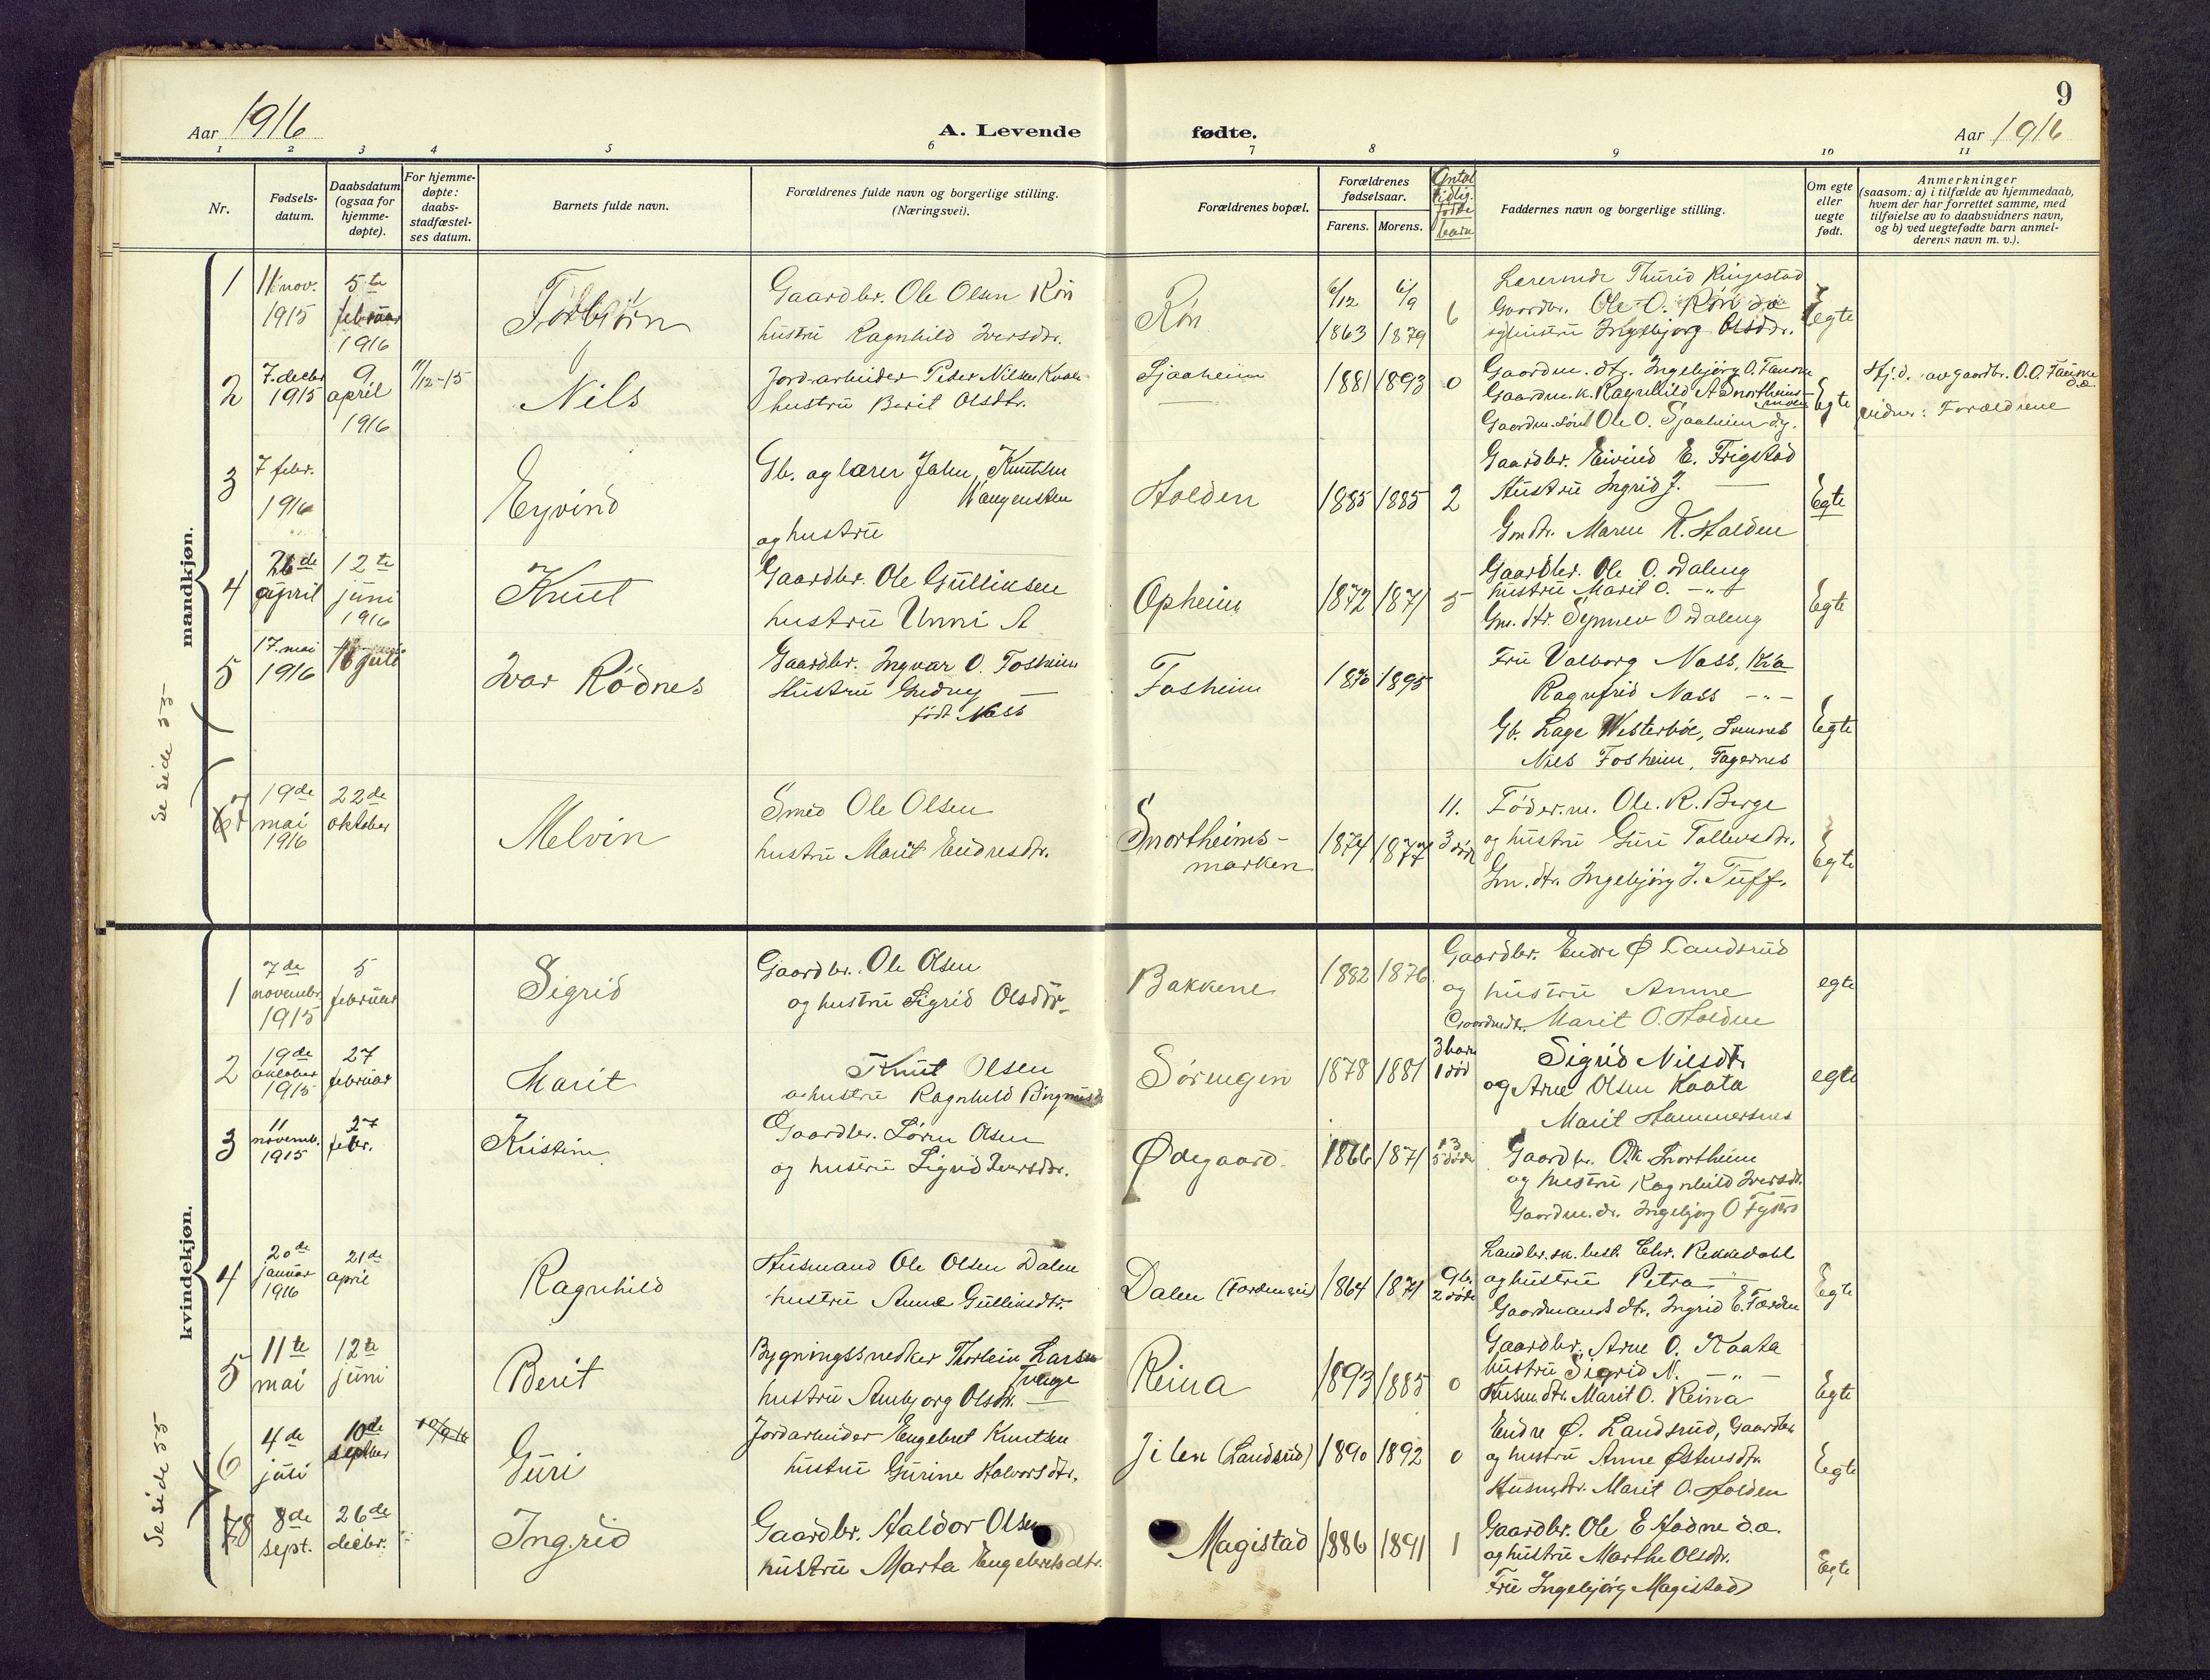 9
Aar 1916
A. Levende fødte.
Aar 1916
1 2 3 4 5 6 7 8 9 10 11
Nr.
Fødsels-
datum.
Daabsdatum
(ogsaa for
hjemme-
døpte).
For hjemme-
døpte:
daabs-
stadfæstel-
ses datum.
Barnets fulde navn.
Forældrenes fulde navn og borgerlige stilling.
(Næringsvei).
Forældrenes bopæl.
Forældrenes
fødselsaar.
Farens. Morens.
Antal
tidlig.
fødte
barn
Faddernes navn og borgerlige stilling.
Om egte
eller
uegte
født.
Anmerkninger
(saasom: a) i tilfælde av hjemmedaab,
hvem der har forrettet samme, med
tilføielse av to daabsvidners navn,
og b) ved uegtefødte barn anmel-
derens navn m. v.).
mandkjøn.
1
11 nov.
1915
5te
februar
1916
Torbjørn
Gaardbr. Ole Olsen Røn
hustru Ragnhild Iversdtr.
Røn
6/12
1863
6/9
1879
6
Lærerinde Thurid Ringestad
Gaardbr. Ole O. Røn
og hustru Ingebjørg Olsdtr.
Egte
2
7. decbr
1915
9.
april
1916
11/12-15
Nils
Jordarbeider Peder Nilsen
hustru Berit Olsdtr.
Sjaaheim
1881
1893
0
Gaardm. dtr. Ingebjørg O. Fauske
Gaardm. k. Ragnhild A Snortheims-
moen
Gaardm. søn Ole O. Sjaaheim
Egte
Hj.d. av gaardbr. O.O. Fauske
d.æ.
vidner: Forældrene
3
7 febr.
1916
Eyvind
Gb. og lærer Jahn Knutsen
Wangensten
og hustru
Holden
1885
1885
2
Gaardbr. Eivind E. Frigstad
Hustru Ingrid J. —
Gmdtr. Maren K. Holden
Egte
4
26de
april
12te
juni
1916
Knut
Gaardbr. Ole Gulliksen
hustru Unni A
Opheim
1872
1871
5
Gaardbr. Ole O. Daleng
hustru Marit O. -"-
Gm. dtr. Synnev O Daleng
Egte
5
17. mai
1916
16 juli
Ivar Rødnes
Gaardbr. Ingvar O. Fosheim
Hustru Gudny —
født Nass
Fosheim
1870
1895
Fru Valborg Nass, Kr.a
Ragnfrid Nass -"-
Gb. Lage Westerbøe, Svennes
Nils Fosheim, Fagernes
Egte
Se side 55
19de
mai
1916
22de
oktober
Melvin
Smed Ole Olsen
hustru Marit Endresdtr.
Snortheims-
marken
1874
1877
11.
3 død
Føder.m. Ole. R. Berge
og hustru Guri Tollevsdtr.
Gm. dtr. Ingebjørg J. Tuff.
Egte
kvindekjøn.
1
7de
novembr.
1915
5
februar
Sigrid
Gaardbr. Ole Olsen
og hustru Sigrid Olsdtr.
Bakkene
1882
1876
Gaardbr. Endre Ø Landsrud
og hustru Anne
Gaardmdtr. Marit O. Holden
egte
2
19de
oktober
1915
27
februar
Marit
Knut Olsen
og hustru Ragnhild
Sørengen
1878
1881
3 barn
1 død
Sigrid Nilsdtr
og Arne Olsen Kaata
Marit Hammersnes
egte
3
11
novemb.
1915
27
febr.
Kristine
Gaardbr. Søren Olsen
og hustru Sigrid Iversdtr.
Ødegaard.
1866
1871
13
5 døde
Gaardbr. O.K Snortheim
og hustru Ragnhild Iversdt.
Gaardm.dr. Ingebjørg O Fystro
4
20de
januar
1916
21de
april
Ragnhild
Husmand Ole Olsen Dalen
hustru Anne Gulliksdtr.
Dalen
1864
1871
9 b.
2 døde
Landbr.sk. best. Chr. Rekkedahl
og hustru Petra -"-
Gaardmands dtr. Ingrid E. Færden
Egte
5
11te
mai
12te
juni
Berit
Bygningssnedker Thorlein Larsen
Tvenge
hustru Ambjørg Olsdtr. —
Reina
1893
1885
0
Gaardbr. Arne O. Kaata
hustru Sigrid N. -"-
Husm.dtr. Marit O. Reina
Egte
Se side 55
6
4de
juli
10de
septber
10/9-16
Guri
Jordarbeider Engebret Knutsen
hustru Gurine Halvorsdtr.
Jilen (Landsrud)
1890
1892
0
Endre Ø. Landsrud, Gaardbr.
og hustru Anne Østensdtr.
Husm.dtr. Marit O. Holden
Egte
78
8de
sept.
26de
decbr.
Ingrid
Gaardbr. Haldor Olsen
hustru Marta Engebretsdtr.
Magistad
1886
1891
1
Gaardbr. Ole E Hadne d.æ.
og hustru Marthe Olsdtr.
Fru Ingebjørg Magistad
Egte